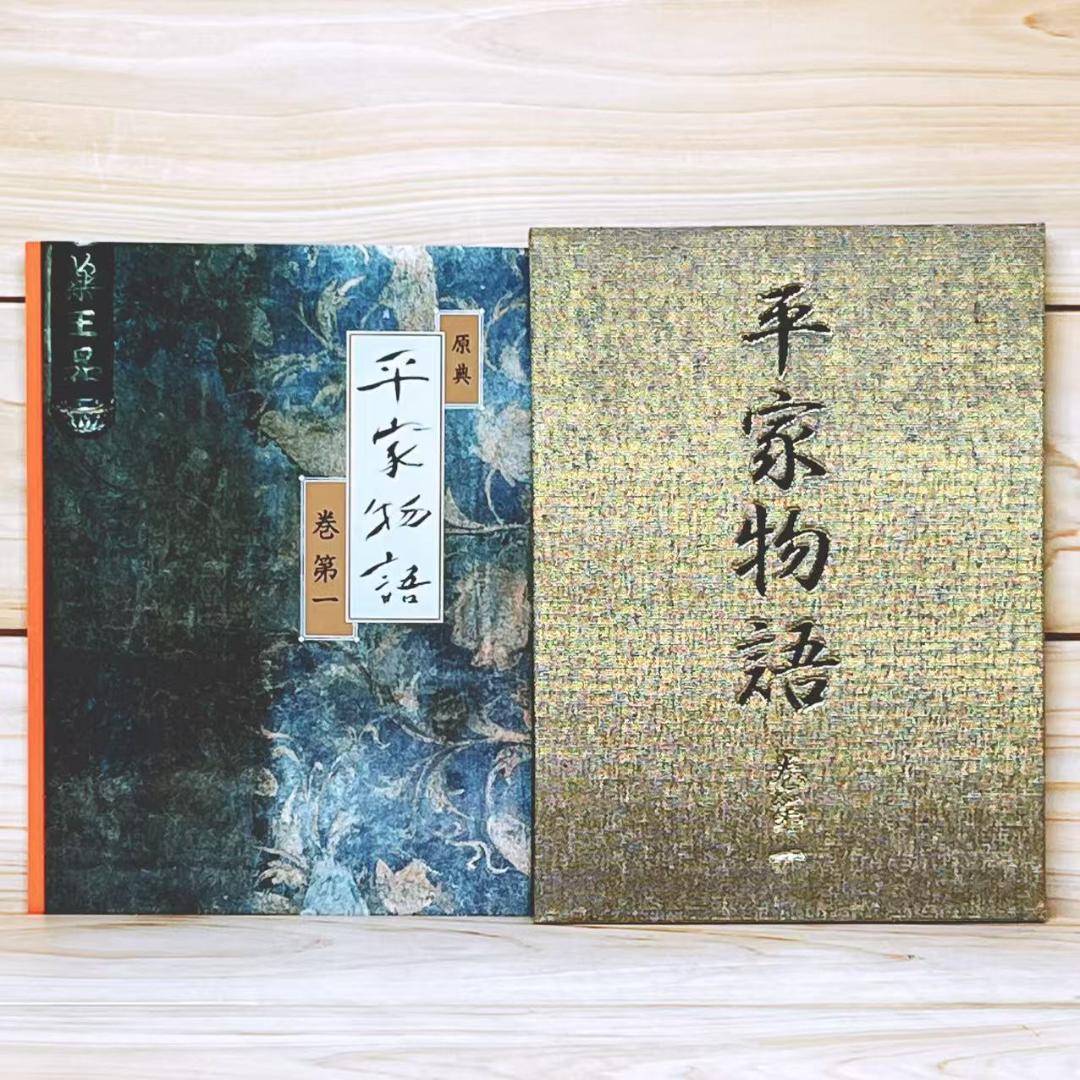 原典
平家物語
巻第一
平家物語
巻第一